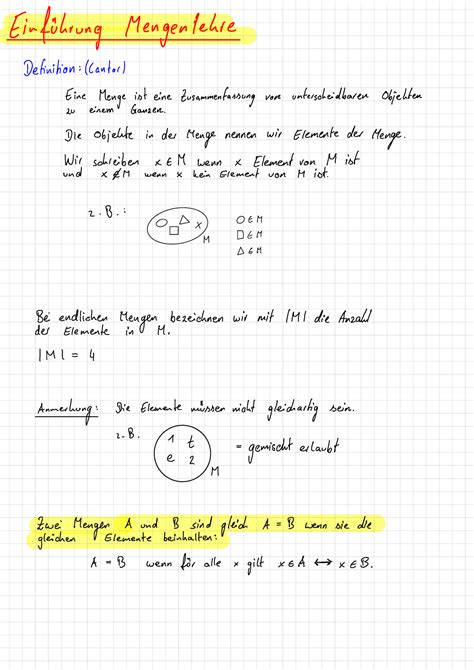 Einführung Mengenlehre
Definition: (Cantor)
Eine Menge ist eine Zusammenfassung von unterscheidbaren Objekten
zu einem Ganzen.
Die Objekte in der Menge nennen wir Elemente der Menge.
Wir schreiben x ∈ M wenn x Element von M ist
und x ∉ M wenn x kein Element von M ist.
z.B.:
x
M
○ ∈ M
□ ∈ M
△ ∈ M
Bei endlichen Mengen bezeichnen wir mit |M| die Anzahl
der Elemente in M.
|M| = 4
Anmerkung: Die Elemente müssen nicht gleichartig sein.
z.B.
1 t
e 2
M
= gemischt erlaubt
Zwei Mengen A und B sind gleich A = B wenn sie die
gleichen Elemente beinhalten:
A = B wenn für alle x gilt x ∈ A ↔ x ∈ B.